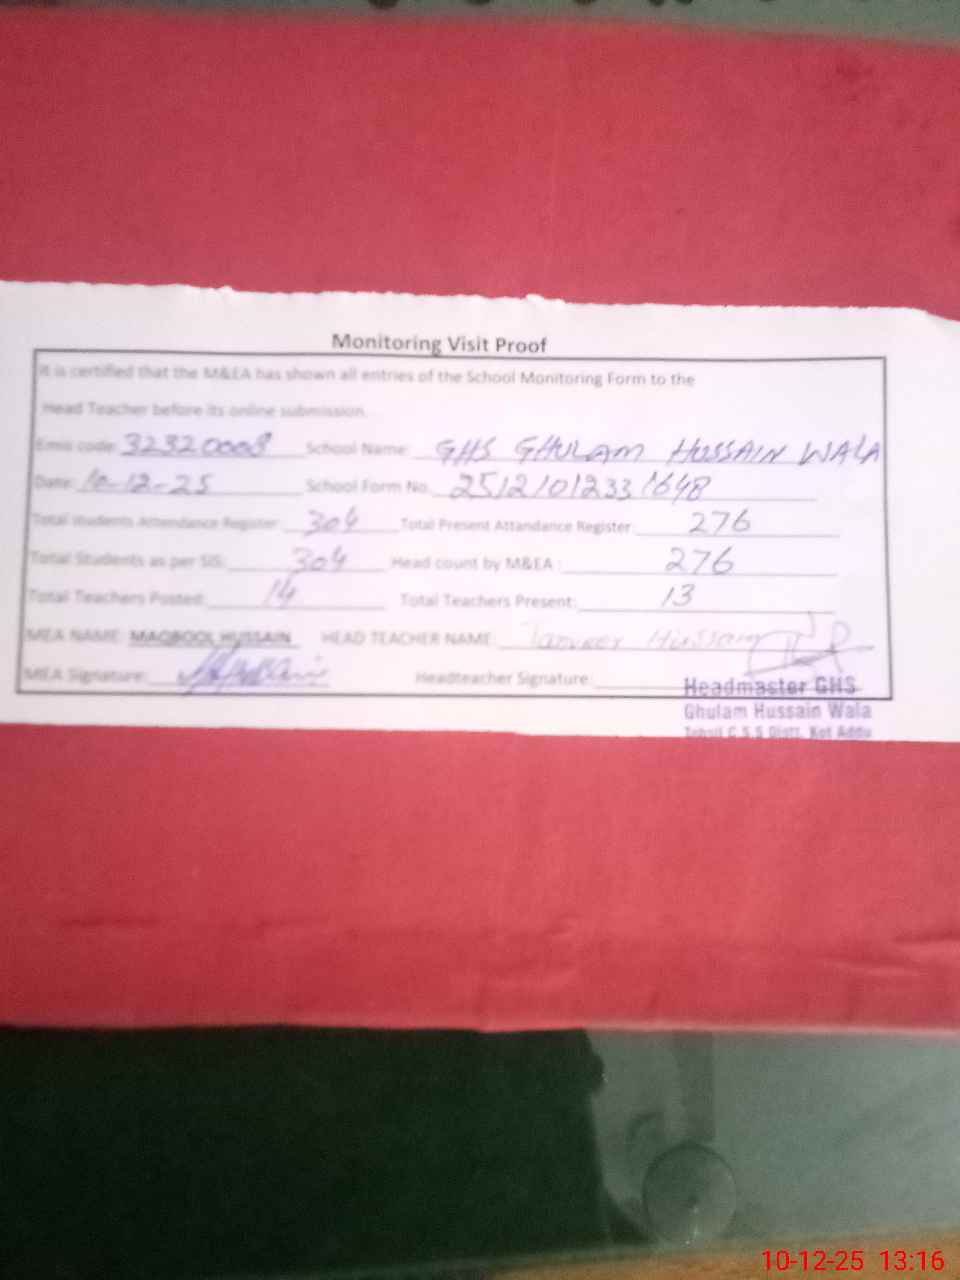 Monitoring Visit Proof
It is certified that the M&EA has shown all entries of the School Monitoring Form to the
Head Teacher before its online submission.
Emis code: 32320008 School Name: GHS GHULAM HUSSAIN WALA
Date: 10-12-25 School Form No. 25121012331648
Total students Attendance Register: 304 Total Present Attandance Register: 276
Total Students as per SIS: 304 Head count by M&EA : 276
Total Teachers Posted: 14 Total Teachers Present: 13
MEA NAME: MAQBOOL HUSSAIN HEAD TEACHER NAME: Tanveer Hussain
MEA Signature: Headteacher Signature:
Headmaster GHS
Ghulam Hussain Wala
Tehsil C.S.S Distt. Kot Addu
10-12-25 13:16